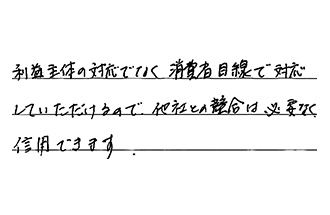 利益主体の対応でなく 消費者目線で対応
していただけるので、他社との競合は 必要なく
信用できます.